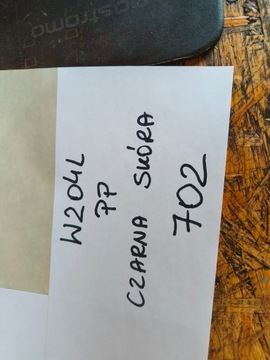 W204L
PP
CZARNA SKÓRA
702